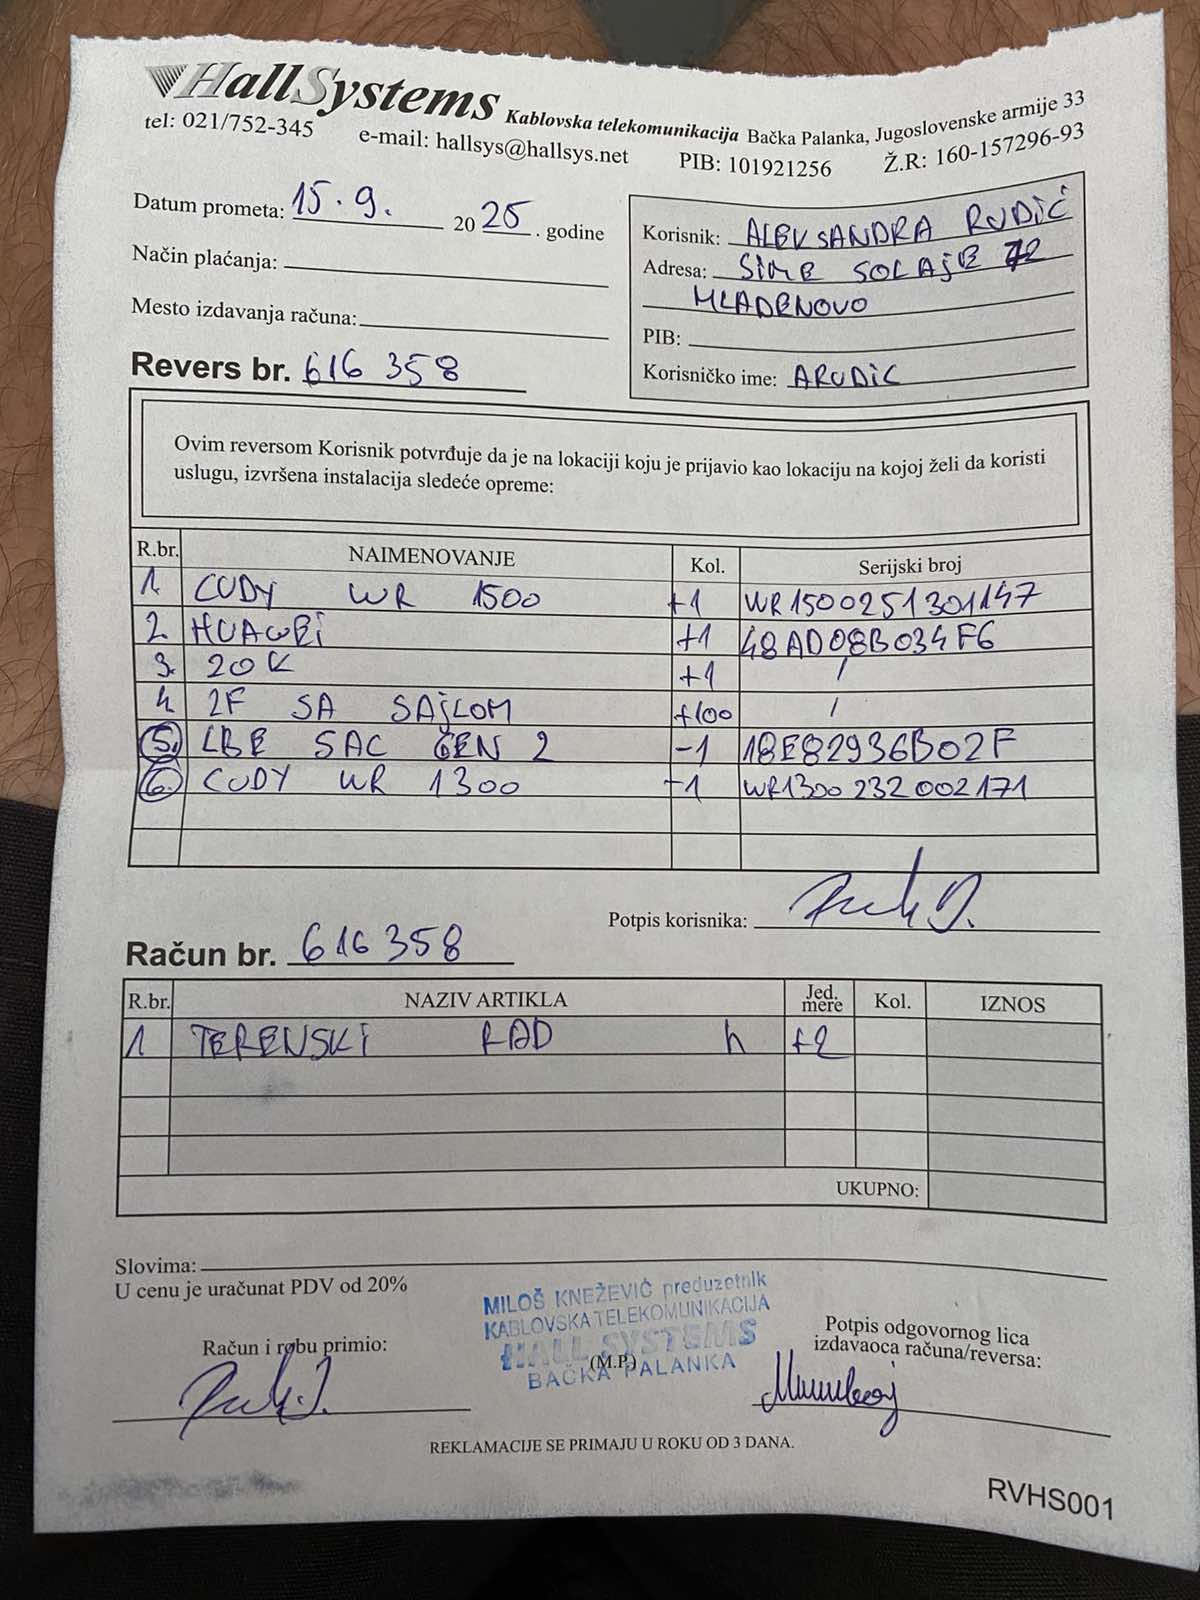 HallSystems Kablovska telekomunikacija Bačka Palanka, Jugoslovenske armije 33
tel: 021/752-345 e-mail: hallsys@hallsys.net PIB: 101921256 Ž.R: 160-157296-93
Datum prometa: 15.9. 2025. godine
Način plaćanja:
Mesto izdavanja računa:
Revers br. 616 358
Korisnik: ALEKSANDRA RUDIĆ
Adresa: SIME SOLAJE 72
MLADENOVO
PIB:
Korisničko ime: ARUDIC
Ovim reversom Korisnik potvrđuje da je na lokaciji koju je prijavio kao lokaciju na kojoj želi da koristi
uslugu, izvršena instalacija sledeće opreme:
R.br. NAIMENOVANJE Kol. Serijski broj
1. CUDY WR 1500 +1 WR1500251301147
2. HUAWEI +1 48AD08B034F6
3. ZOK +1 /
4. 2F SA SAJLOM +100 /
5. LBE 5AC GEN 2 -1 18E82936B02F
6. CUDY WR 1300 -1 WR1300232002171
Potpis korisnika:
Račun br. 616358
R.br. NAZIV ARTIKLA Jed. mere Kol. IZNOS
1 TERENSKI RAD h +2
UKUPNO:
Slovima:
U cenu je uračunat PDV od 20%
MILOŠ KNEŽEVIĆ preduzetnik
KABLOVSKA TELEKOMUNIKACIJA
HALL SYSTEMS
BAČKA PALANKA
(M.P.)
Račun i robu primio:
Potpis odgovornog lica
izdavaoca računa/reversa:
REKLAMACIJE SE PRIMAJU U ROKU OD 3 DANA.
RVHS001